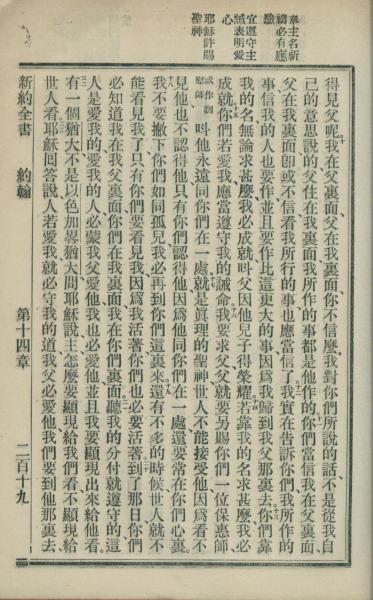 奉主名祈
禱必有應
驗
宜遵守主
誡表明愛
心
耶穌許賜
聖神
得見父呢、我在父裏面、父在我裏面、你不信麼、我對你們所說的話、不是從我自
己的意思說的、父住在我裏面、我所作的事、都是他作的、你們當信我在父裏面、
父在我裏面、卽或不信、看我所行的事也應當信了、我實在告訴你們、我所作的
事、信我的人也要作、並且要作比這更大的事、因爲我歸到我父那裏去、你們靠
我的名、無論求甚麼、我必成就、叫父因他兒子得榮耀、若靠我的名求甚麼、我必
成就、你們若愛我、應當遵守我的誡命、我要求父、父就要另賜你們一位保惠師
或作訓
慰師
叫他永遠同你們在一處、就是眞理的聖神、世人不能接受他、因爲看不
見他、也不認得他、只有你們認得他、因爲他同你們在一處、還要常在你們心裏、
我不要撇下你們如同孤兒、我必再到你們這裏來、還有不多的時候、世人就不
能看見我了、只有你們要看見我、因爲我活著、你們也必要活著、到了那日、你們
必知道我在我父裏面、你們在我裏面、我在你們裏面、聽我的分付就遵守的、這
人是愛我的、愛我的人、必蒙我父愛他、我也必愛他、並且我要顯現出來給他看、
有一個猶大、不是以色加畧猶大、問耶穌說、主怎麼要顯現給我們看、不顯現給
世人看、耶穌回答說、人若愛我、就必守我的道、我父必愛他、我們要到他那裏去、
新約全書 約翰 第十四章 二百十九